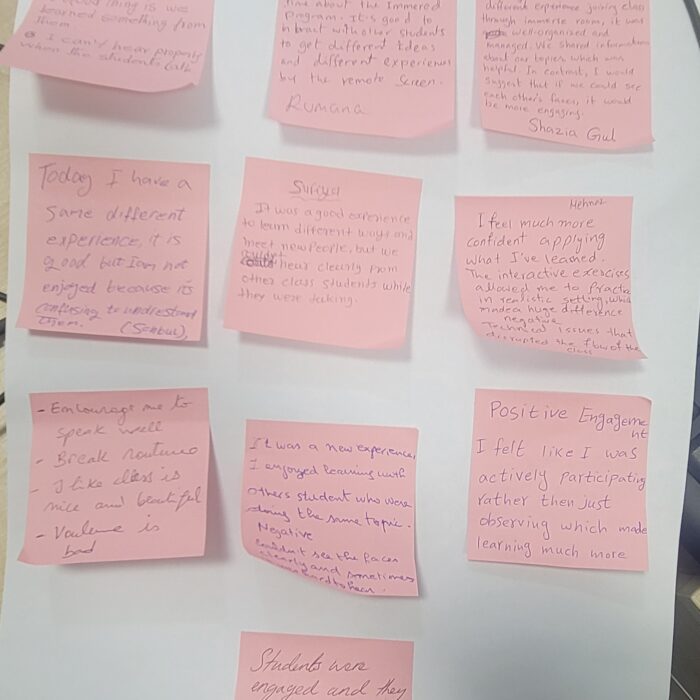 good thing is we
learned something from
them
I can't hear properly
when the students talk
time about the Immersed
Program. It's good to
intract with other students
to get different ideas
and different experiences
by the remote screen.
Rumana
different experience joining class
through immerse room, it was
well-organized and
managed. We shared information
about our topics which was
helpful. In contrast, I would
suggest that if we could see
each other's faces, it would
be more engaging.
Shazia Gul
Today I have a
same different
experience, it is
good but I am not
enjoyed because it's
confusing to understand
them.
Suriya
It was a good experience
to learn different ways and
meet new people, but we
hear clearly from
other class students while
they were talking.
I feel much more
confident applying
what I've learned.
The interactive exercises
allowed me to practic
in realistic setting, which
made a huge difference
negative
Technical issues that
disrupted the flow of the
class
- Encourage me to
speak well
- Break routine
- I like class is
nice and beautiful
- is
bad
It was a new experience,
I enjoyed learning with
others student who were
doing the same topic.
Negative
couldn't see the faces
clearly and sometimes
hard to hear.
Positive Engageme
nt
I felt like I was
actively participating
rather then just
observing which made
learning much more
Students were
engaged and they